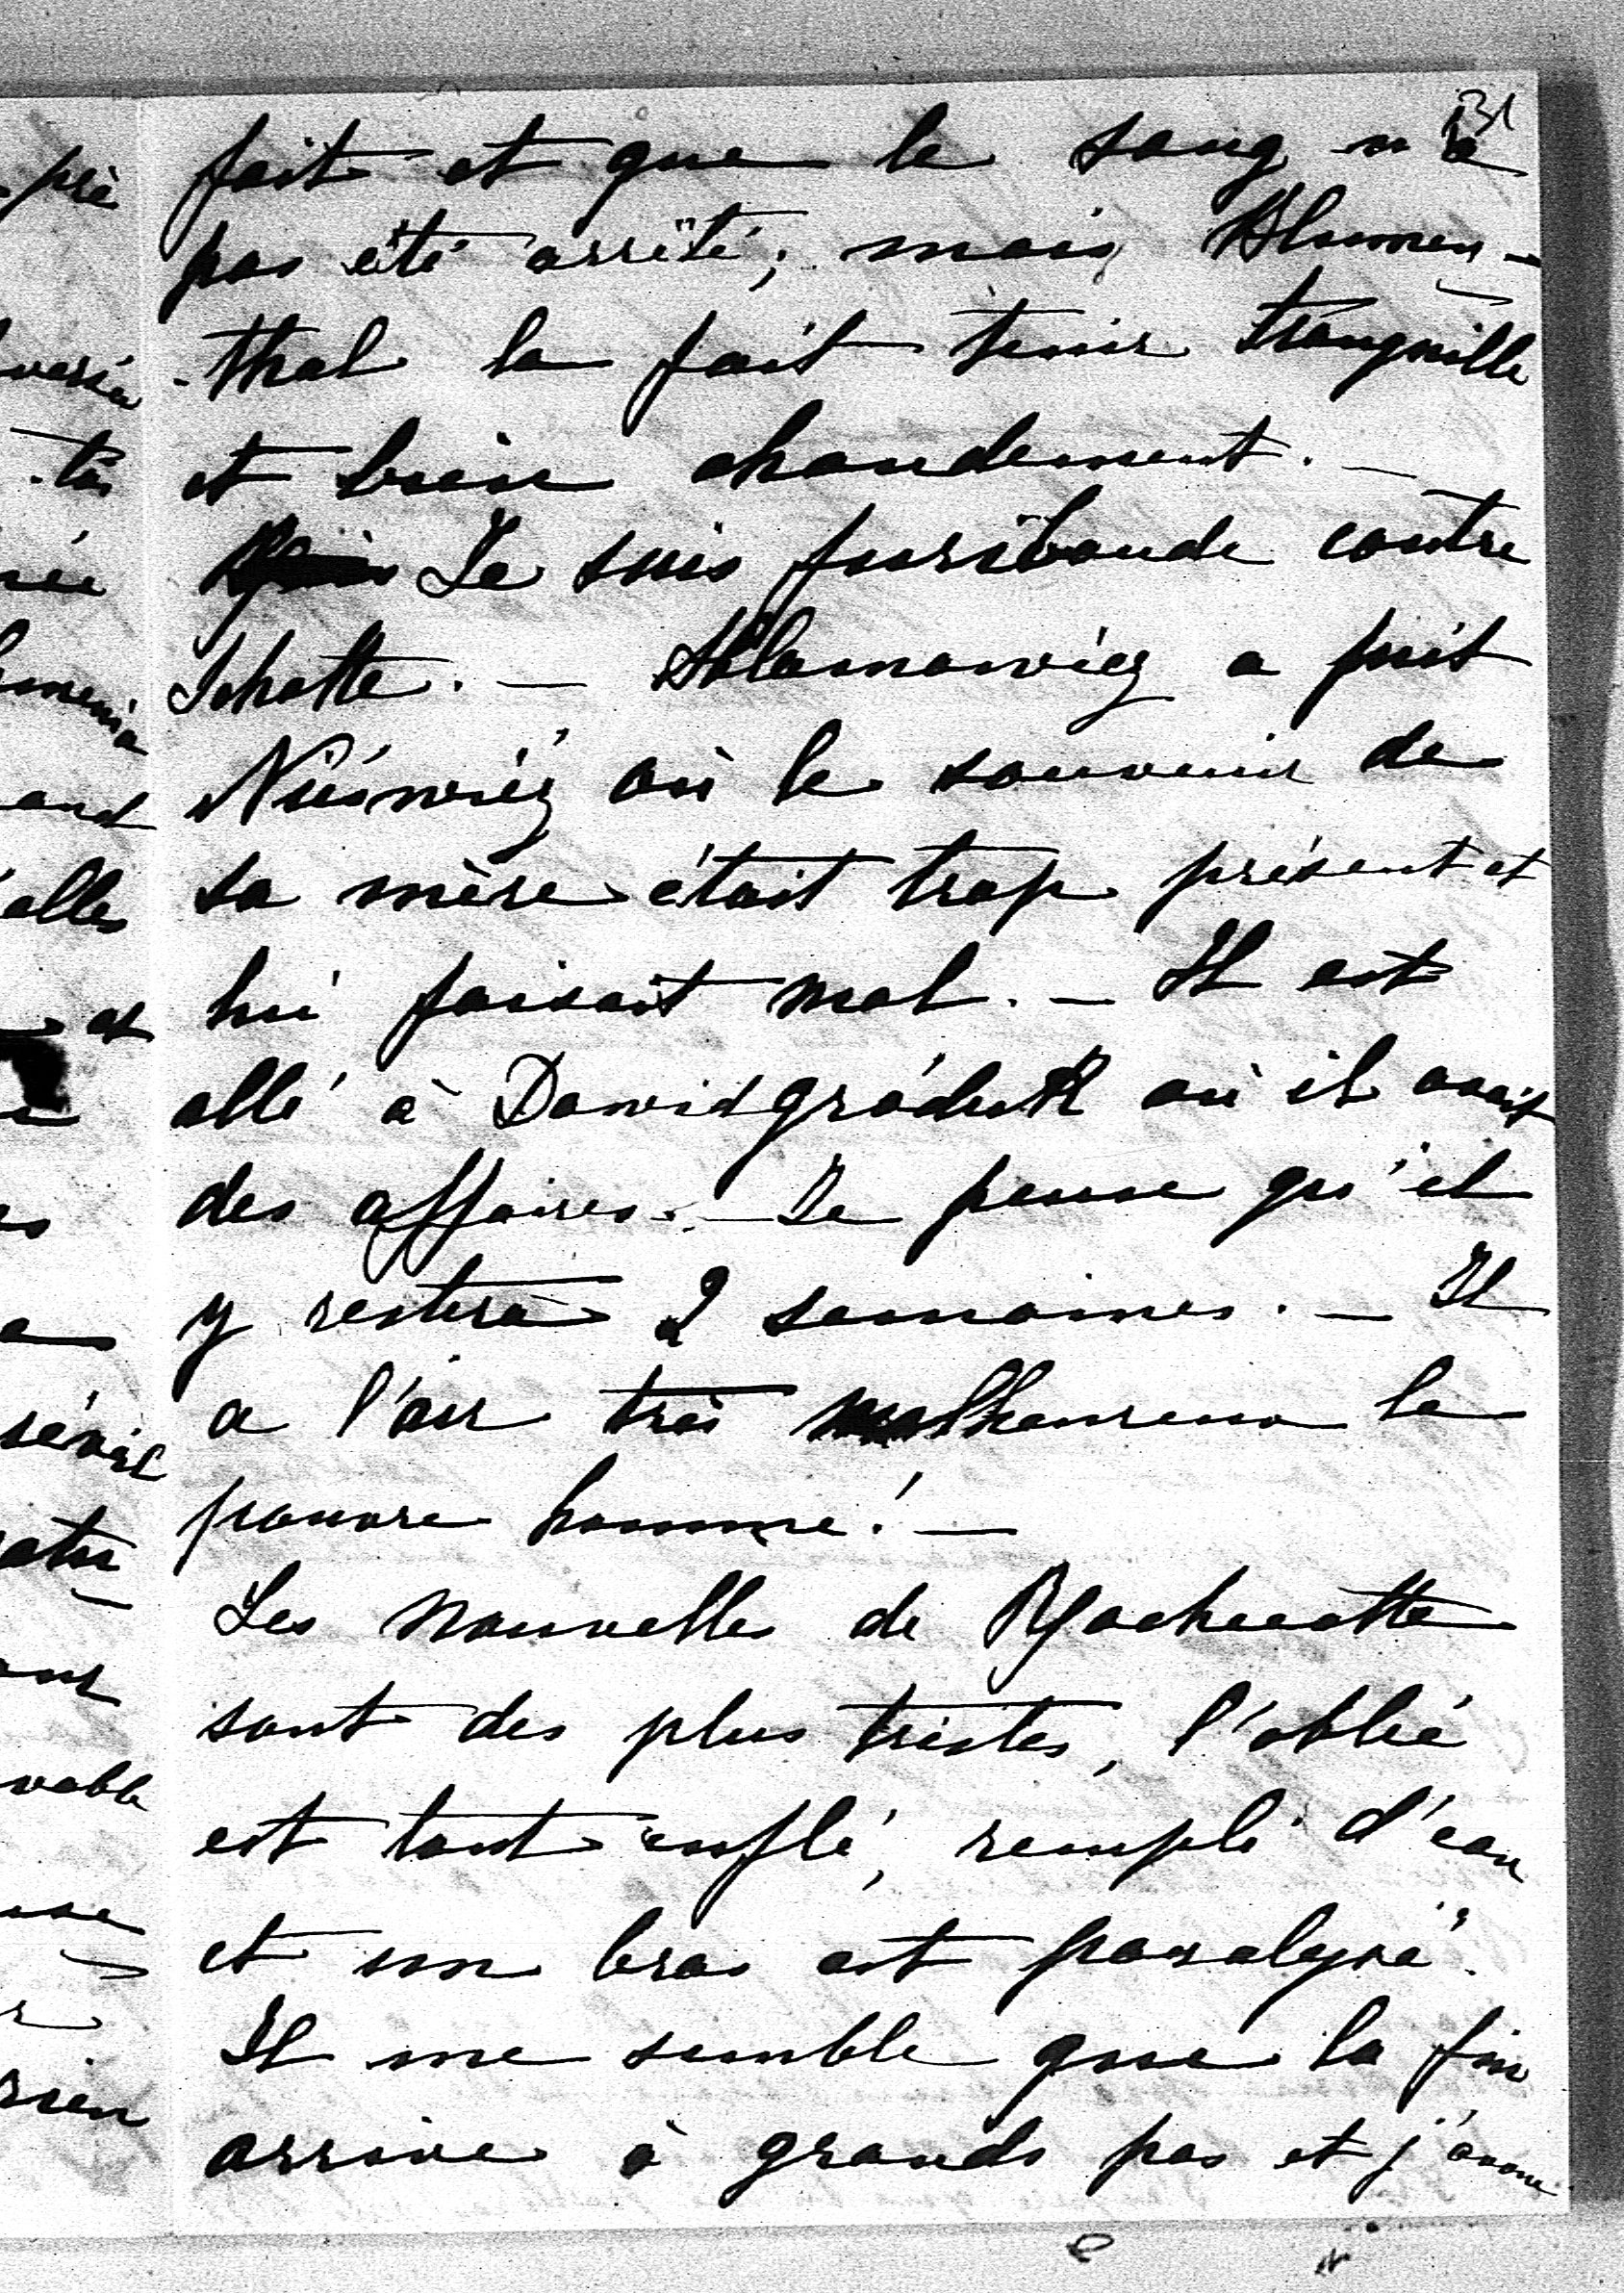 131
fait et que le sang n'a
pas été arrêté; mais Blumen-
-thal la fait tenir tranquille
et bien chaudement. —
Je suis furibonde contre
Schotte. — Sklamowicz a fuit
Nieśwież où le souvenir de
sa mère était trop présent et
lui faisait mal. — Il est
allé à Dawidgródek où il avait
des affaires. — Je pense qu'il
y restera 2 semaines. — Il
a l'air très malheureux le
pauvre homme! —
Les nouvelles de Rochecotte
sont des plus tristes, l'abbé
est tout enflé, rempli d'eau
et un bras est paralysé.
Il me semble que la fin
arrive à grands pas et j'avoue